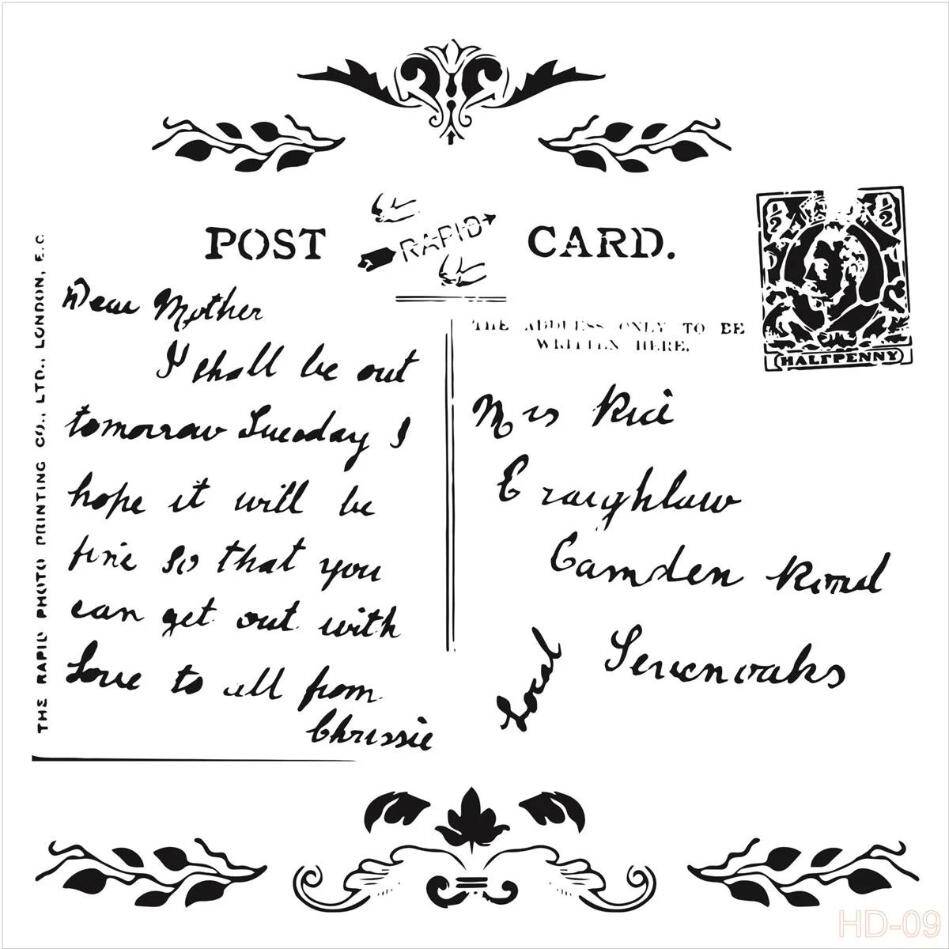 POST RAPID CARD.
½ ½
HALFPENNY
THE ADDRESS ONLY TO BE
WRITTEN HERE.
THE RAPID PHOTO PRINTING CO., LTD., LONDON, E.C.
Dear Mother
I shall be out
tomorrow Tuesday I
hope it will be
fine so that you
can get out with
Love to all from
Chrissie
Mrs Rice
Camden Road
Sevenoaks
Local
HD-09